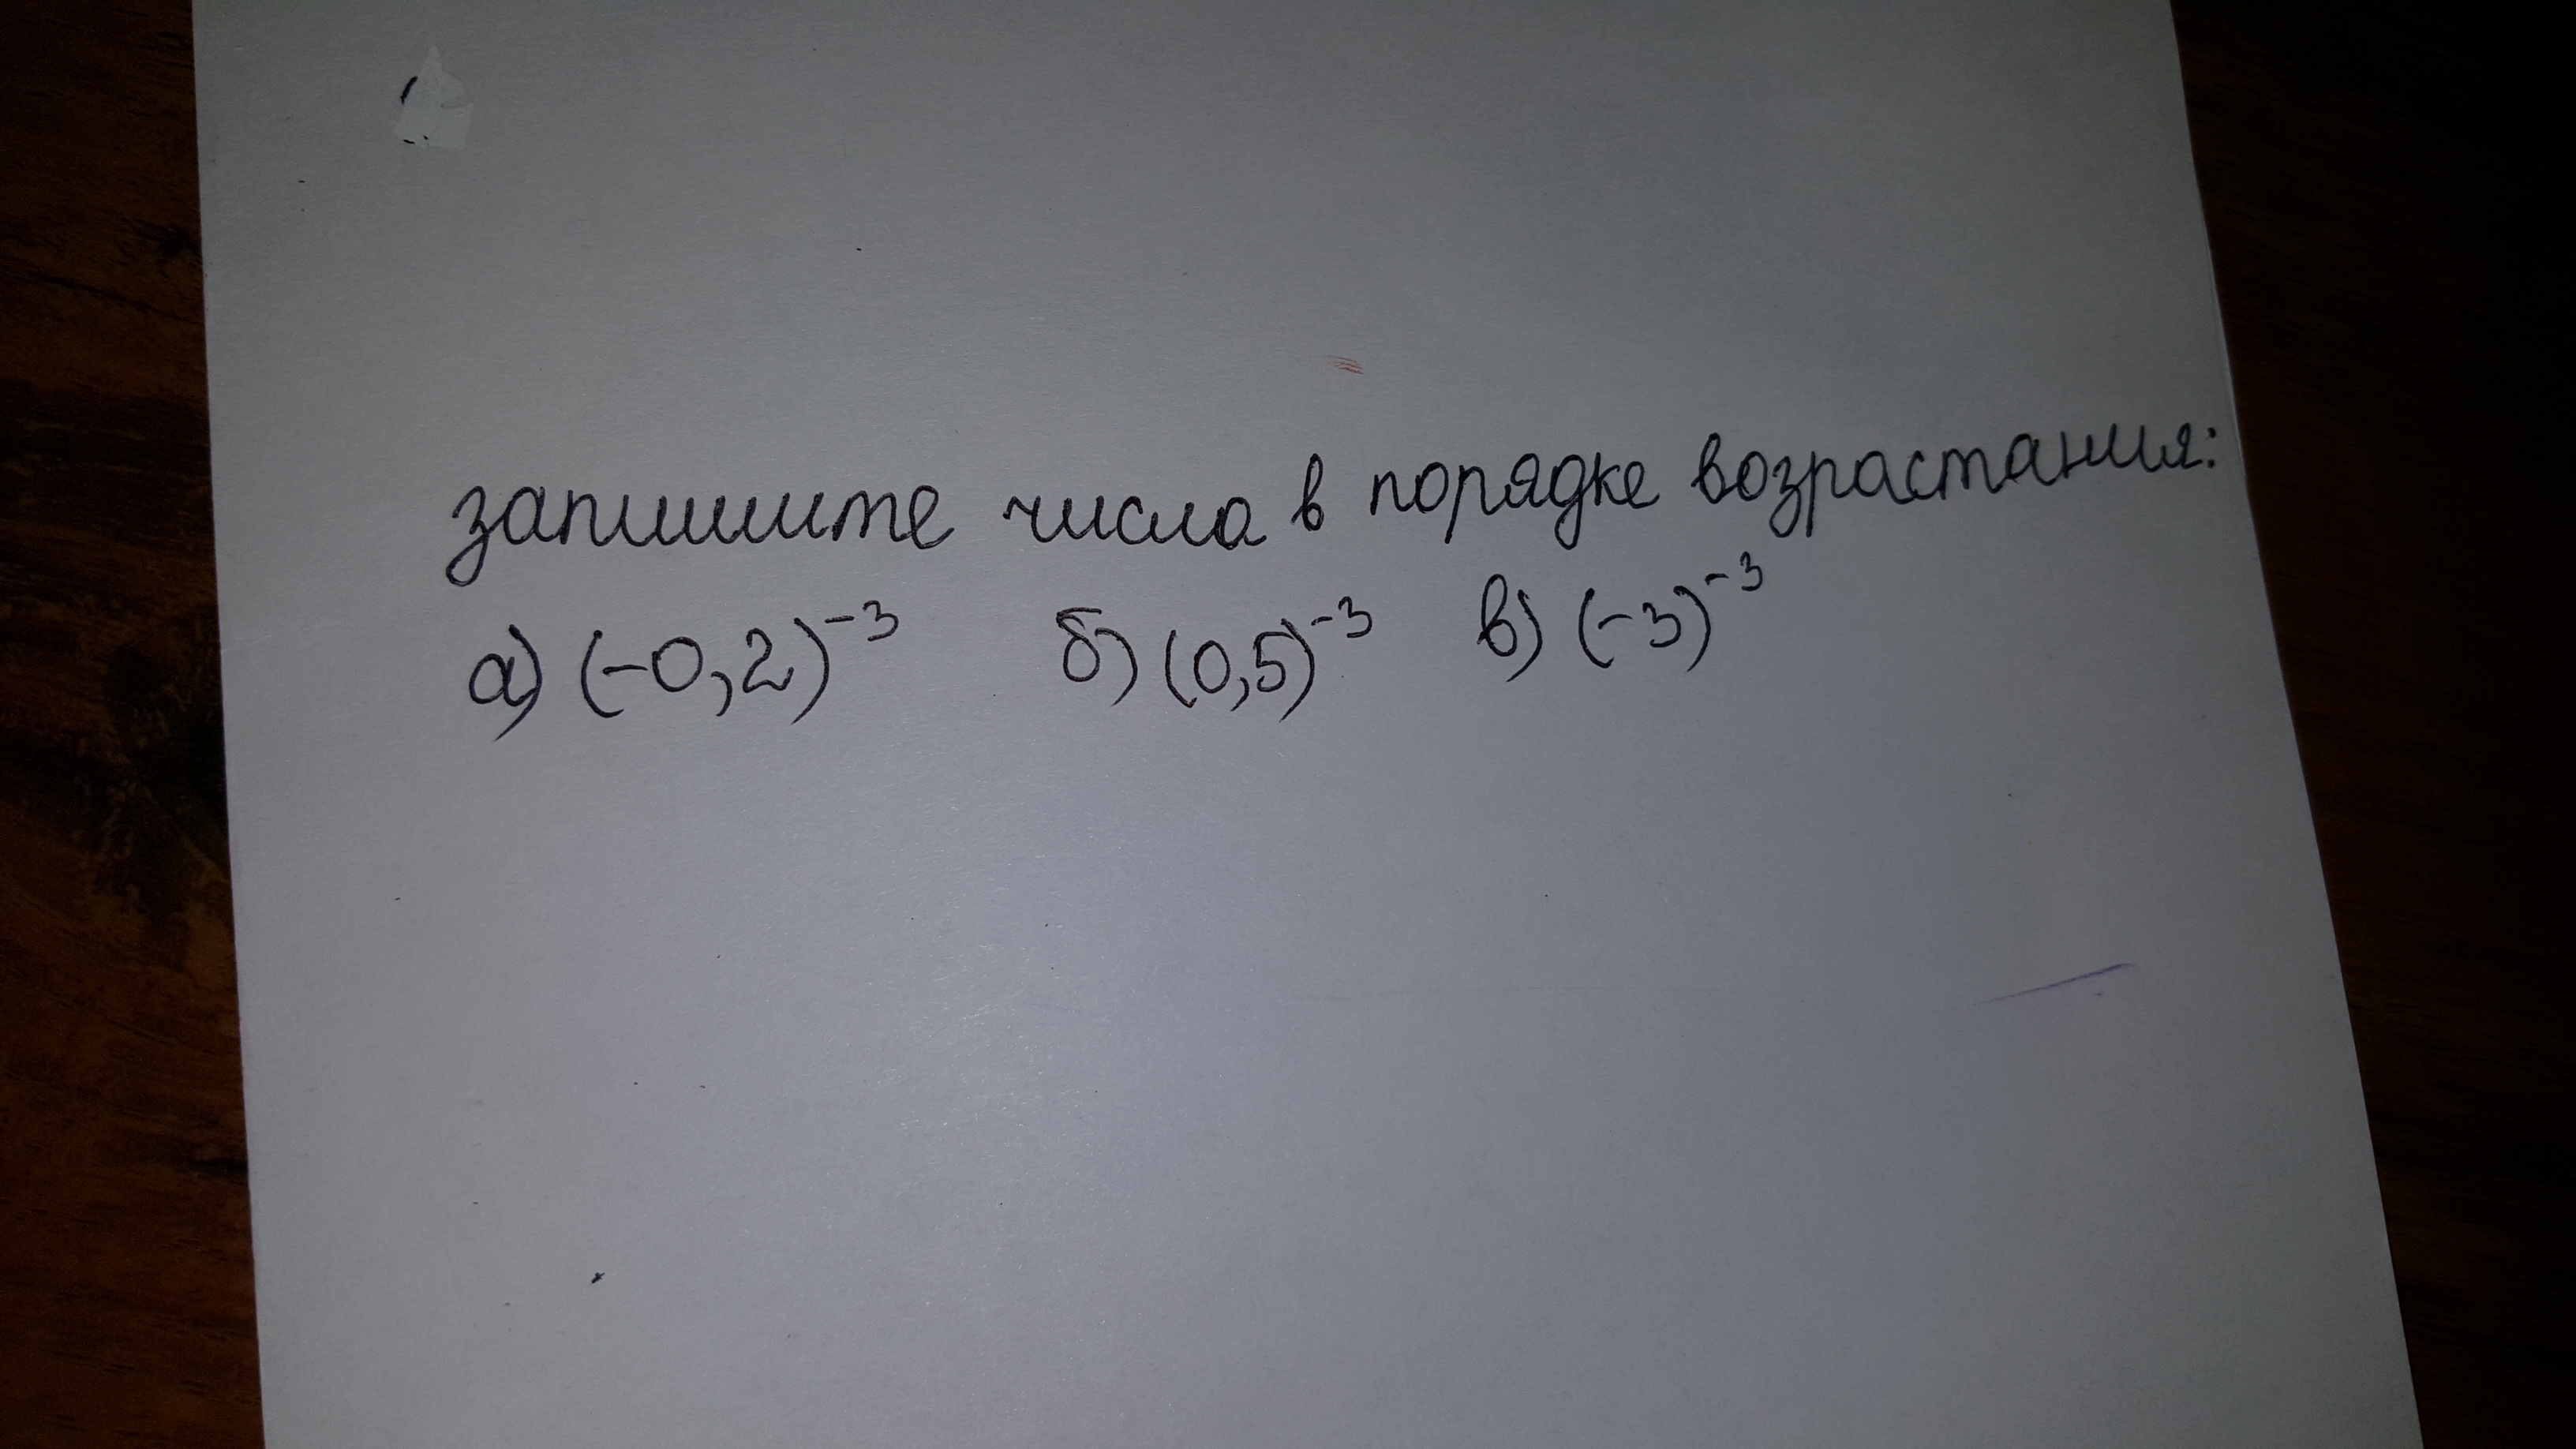 запишите числа в порядке возрастания:
а) (-0,2)⁻³ б) (0,5)⁻³ в) (-3)⁻³